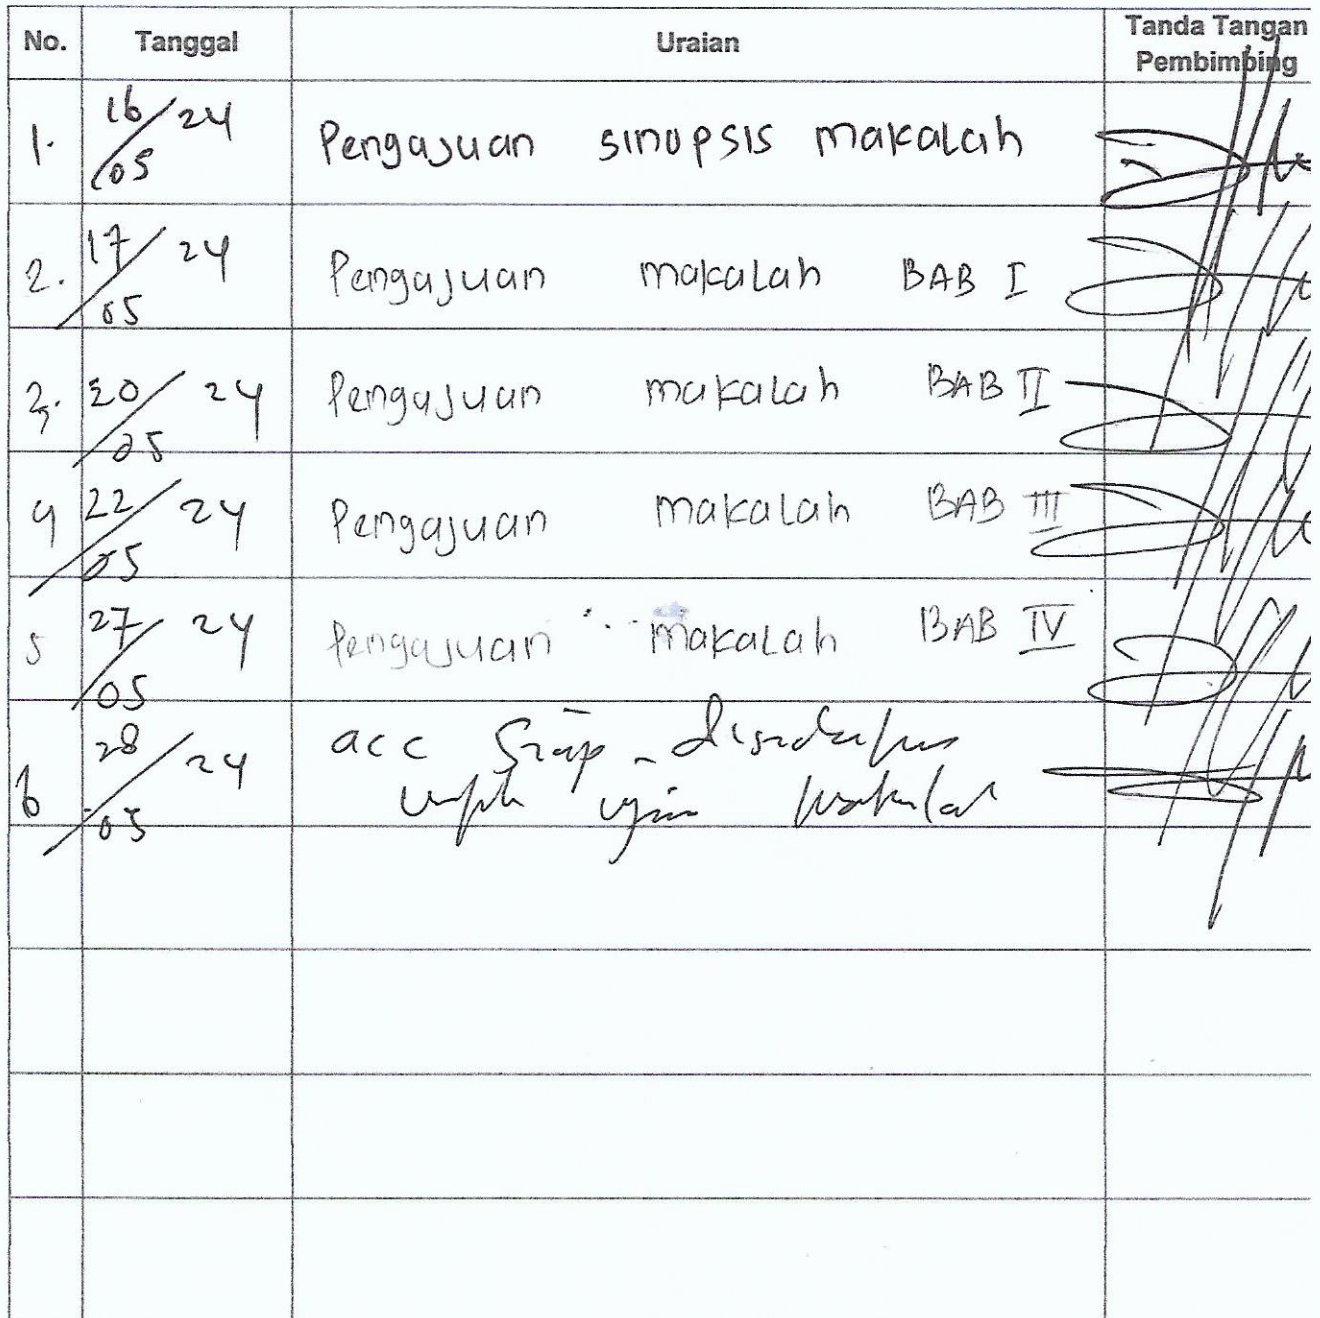 No. Tanggal Uraian Tanda Tangan Pembimbing
1. 16/05 24 Pengajuan sinopsis makalah
2. 17/05 24 Pengajuan makalah BAB I
3. 20/05 24 Pengajuan makalah BAB II
4 22/05 24 Pengajuan makalah BAB III
5 27/05 24 Pengajuan makalah BAB IV
6 28/05 24 acc Siap
ujian makalah